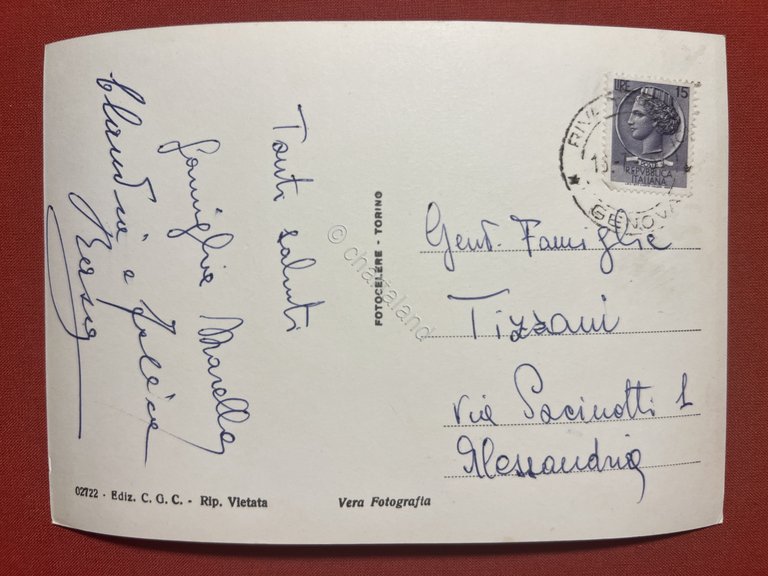 Tanti saluti
famiglia Marella
Claudia e
Rosa
FOTOCELERE - TORINO
© chazaland
LIRE 15
REPVBBLICA
ITALIANA
RIV
GENOVA
Gent. Famiglia
Tizzani
Via Pacinotti 1
Alessandria
02722 - Ediz. C. G. C. - Rip. Vietata
Vera Fotografia